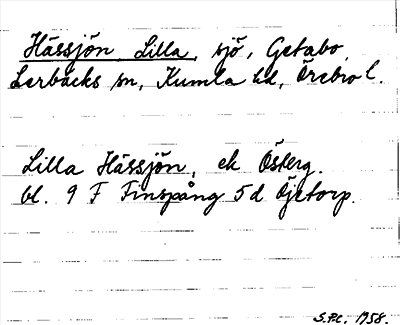 Hässjön, Lilla, sjö, Getabo,
Lerbäcks sn, Kumla hd, Örebro l.
Lilla Hässjön, ek Österg.
bl. 9 F Finspång 5 d Öjetorp.
S.P.C. 1958.